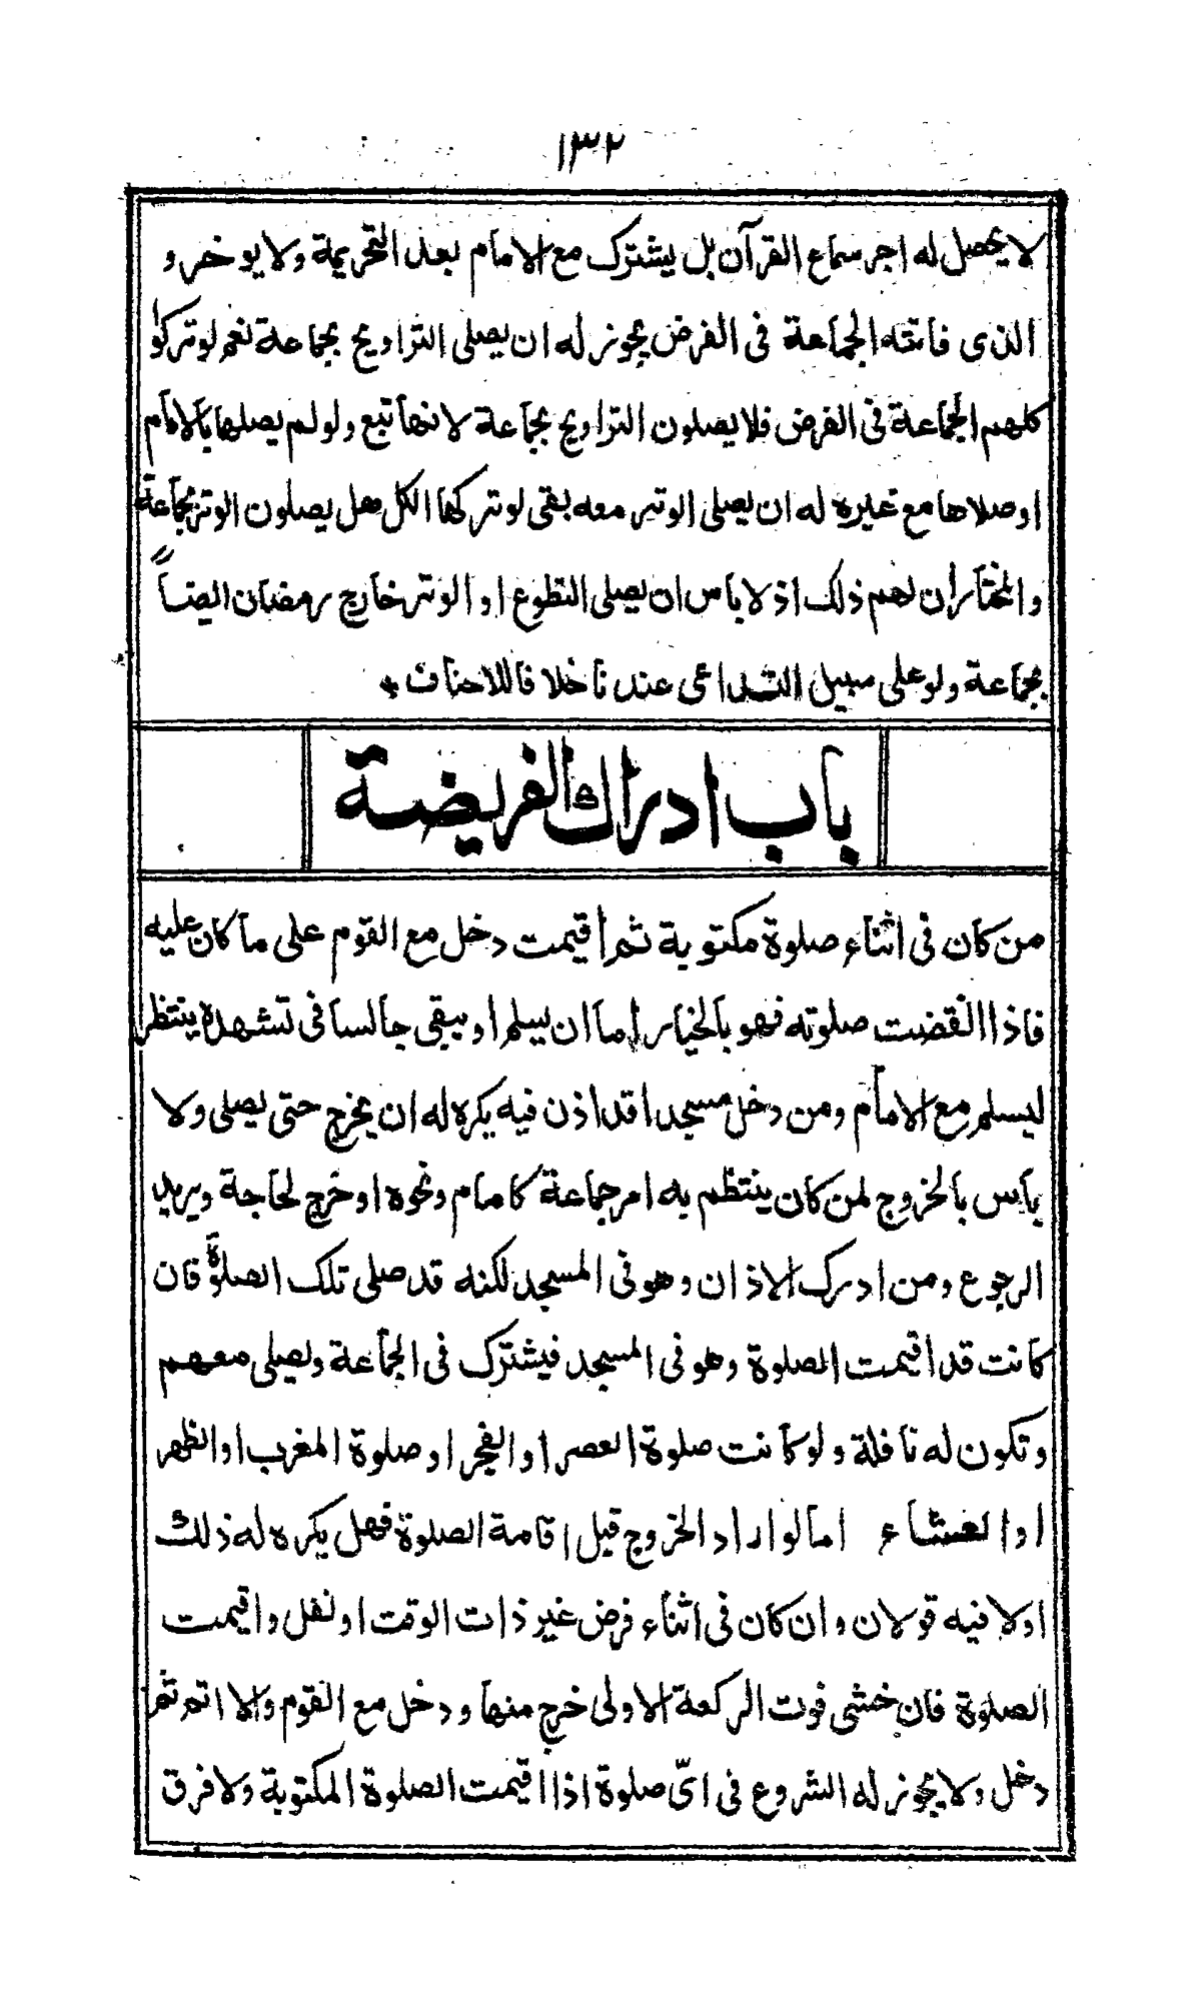 ١٣٢
لا يحصل له اجر سماع القرآن بل يشترك مع الامام بعد التحريمة ولا يوخر و
الذى فاتته الجماعة فى الفرض يجوز له ان يصلى التراويح بجماعة نعم لو تركوا
كلهم الجماعة فى الفرض فلا يصلون التراويح بجماعة لانها تبع ولو لم يصلها بالامام
او صلاها مع غيره له ان يصلى الوتر معه بقى لو تركها الكل هل يصلون الوتر بجماعة
والمختار ان لهم ذلك اذ لا باس ان يصلى التطوع او الوتر خارج رمضان ايضاً
بجماعة ولو على سبيل التداعى عندنا خلافا للاحناف *
باب ادراك الفريضة
من كان فى اثناء صلوة مكتوبة ثم أقيمت دخل مع القوم على ما كان عليه
فاذا انقضت صلوته فهو بالخيار اما ان يسلم او يبقى جالسا فى تشهده ينتظر
ليسلم مع الامام ومن دخل مسجدا قد اذن فيه يكره له ان يخرج حتى يصلى ولا
باس بالخروج لمن كان ينتظم به امر جماعة كامام ونحوه او خرج لحاجة ويريد
الرجوع ومن ادرك الاذان وهو فى المسجد لكنه قد صلى تلك الصلوة فان
كانت قد اقيمت الصلوة وهو فى المسجد فيشترك فى الجماعة ويصلى معهم
وتكون له نافلة ولو كانت صلوة العصر او الفجر او صلوة المغرب او الظهر
او العشاء اما لو اراد الخروج قبل اقامة الصلوة فهل يكره له ذلك
اولا فيه قولان وان كان فى اثناء فرض غير ذات الوقت او نفل واقيمت
الصلوة فان خشى فوت الركعة الاولى خرج منها ودخل مع القوم والا اتم ثم
دخل ولا يجوز له الشروع فى اىّ صلوة اذا اقيمت الصلوة المكتوبة ولا فرق